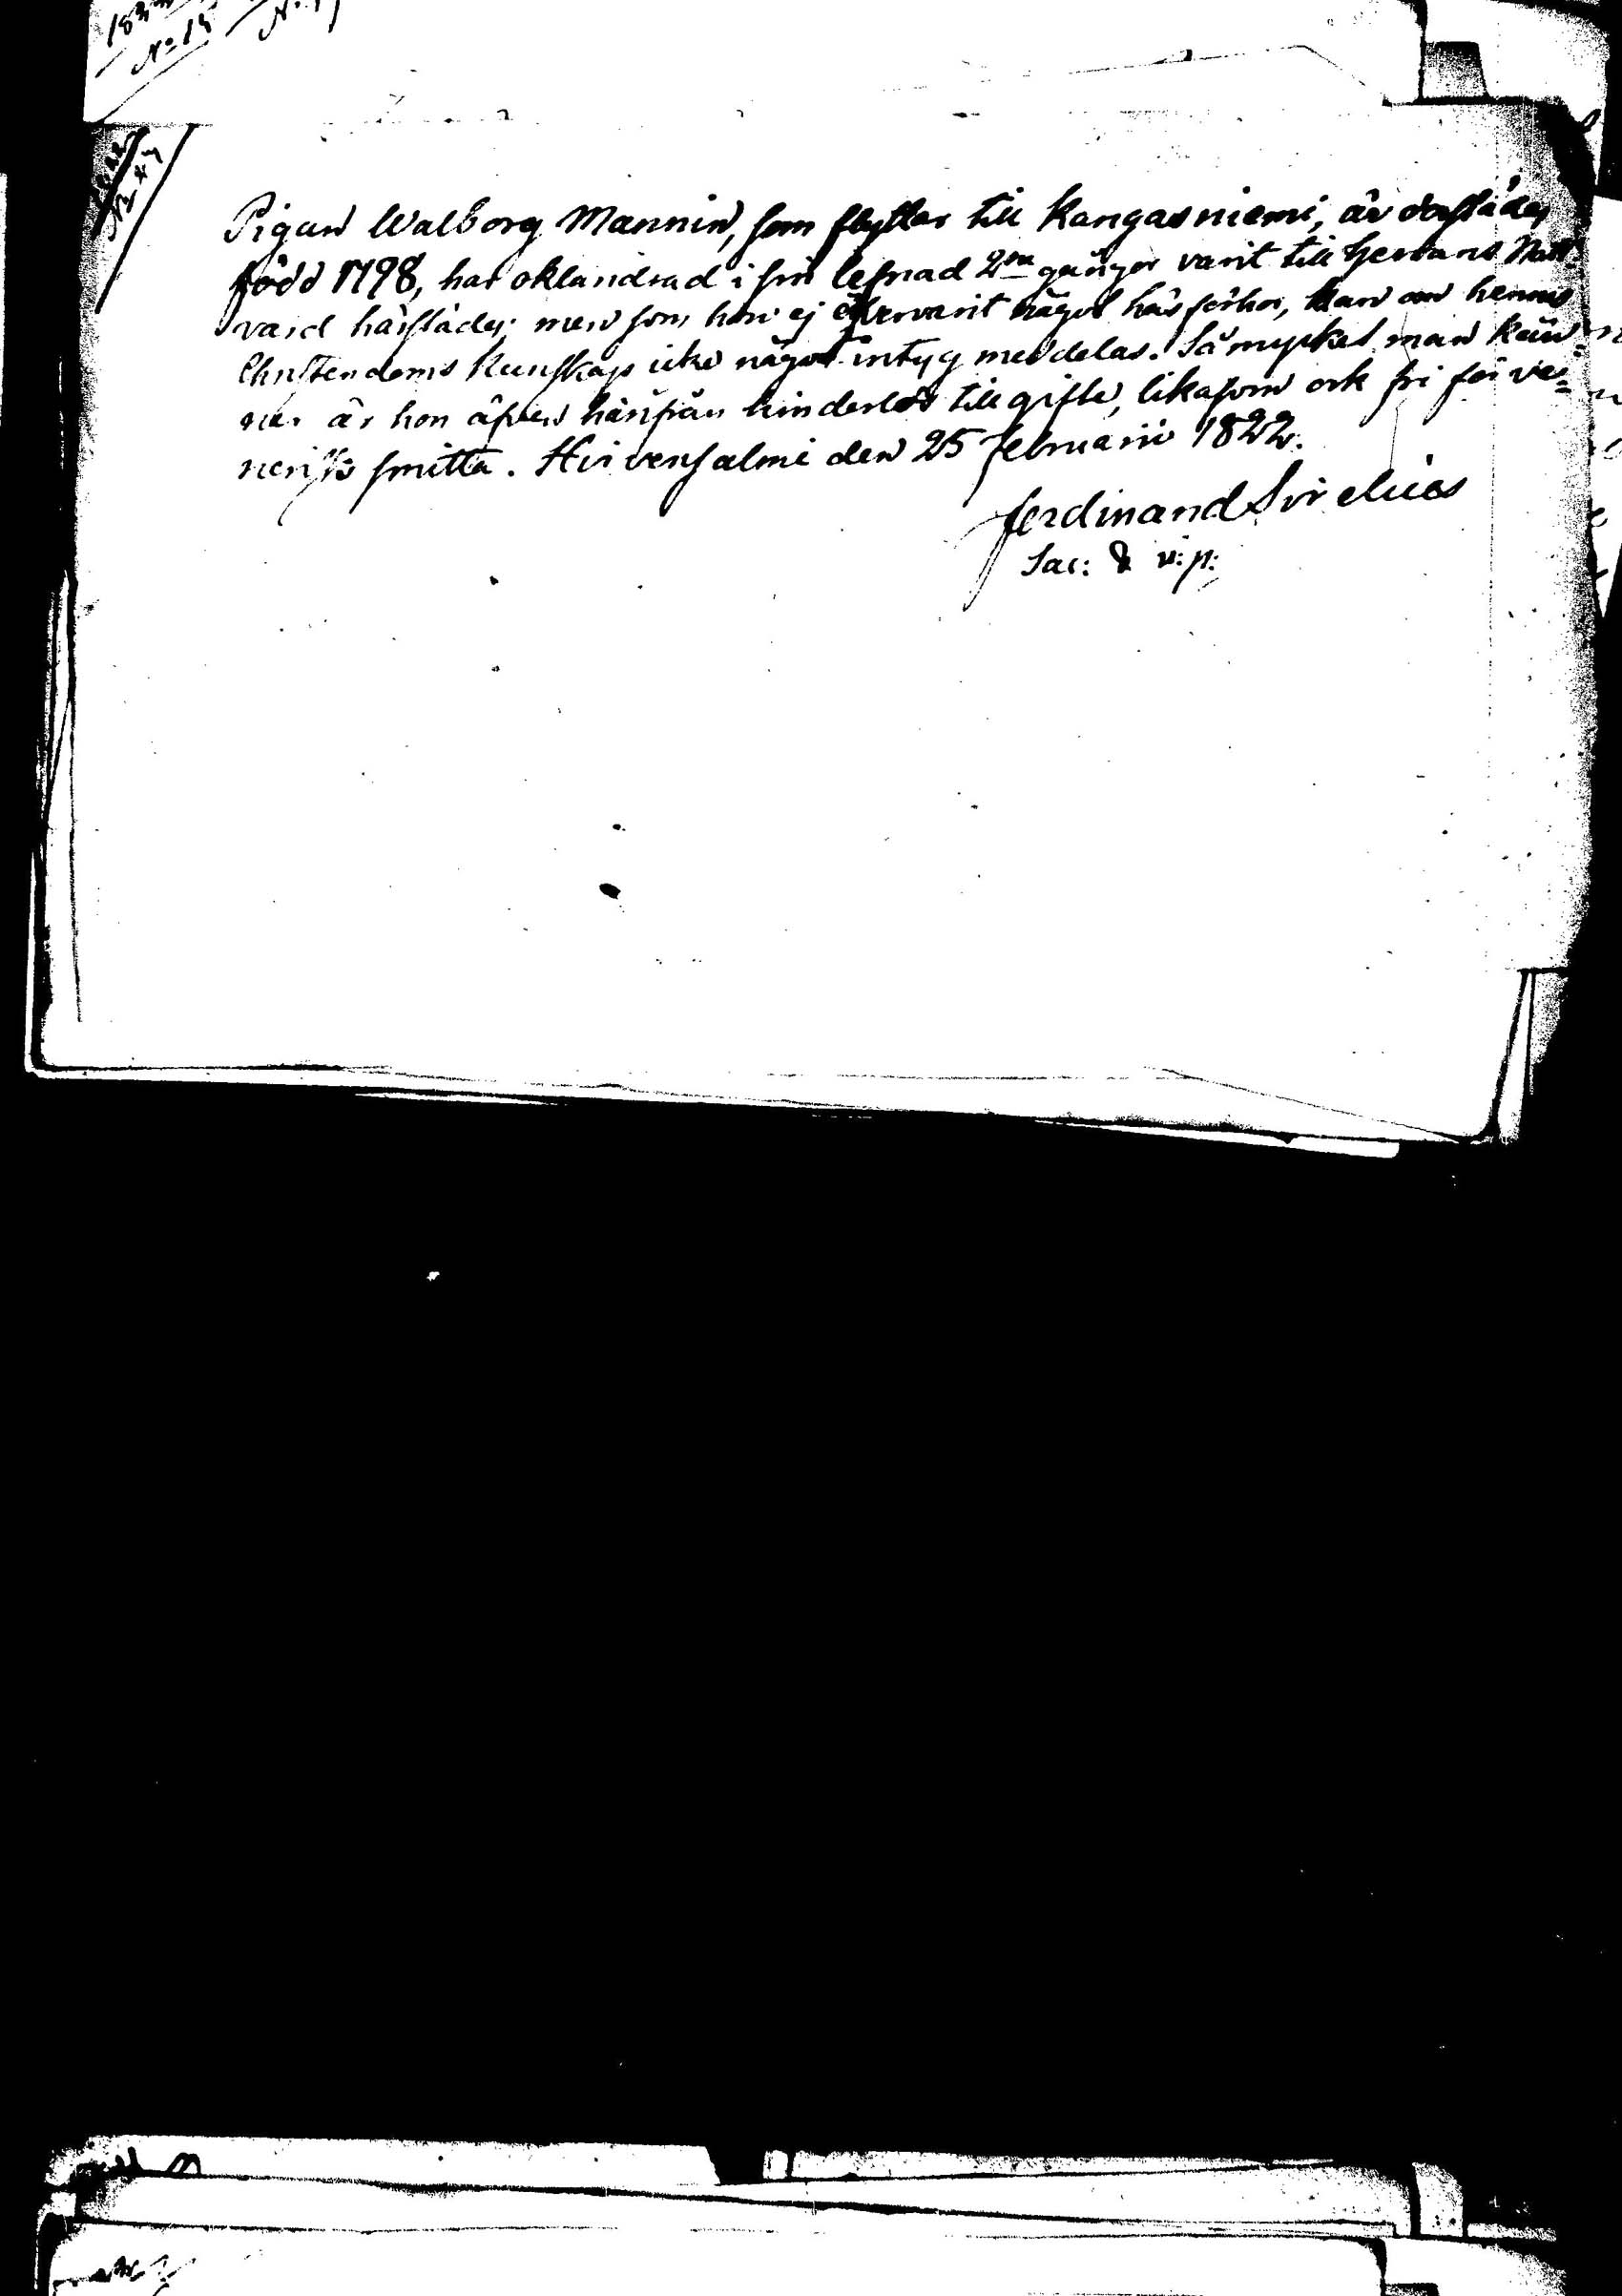 Pigan Walborg Mannin, som flyttar till Kangasniemi, är derstädes
född 1798, har oklandrad i sin lefnad 2ne gånger varit till Herrans Natt-
vard härstädes; men som hon ej öfvervarit något läsförhör, kan om hennes
Christendoms Kunskap icke något intyg meddelas. Så mycket man kän-
ner är hon äfven härifrån hinderlös till gifte, likasom ock fri för ve-
nerisk smitta. Hirvensalmi den 25 Februarii 1822.
Ferdinand Sirelius
Sac: & v:p: